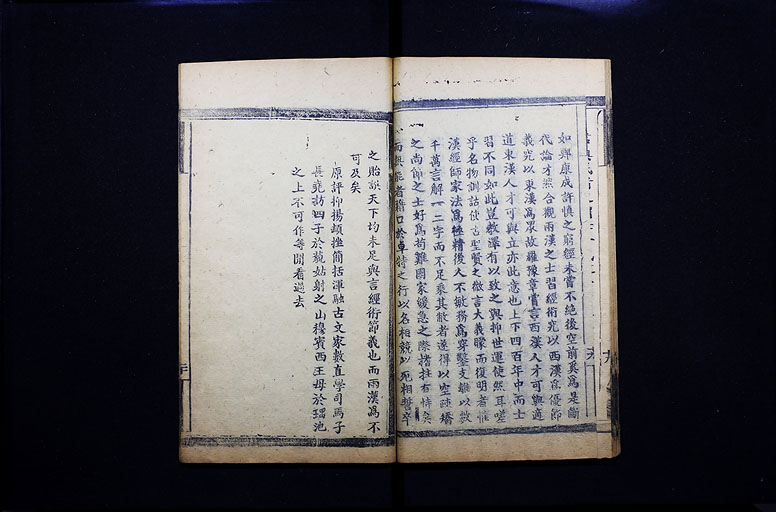 如與康成許慎之窮經未嘗不絕後空前奚為是斷
代論才然合觀兩漢之士習經術究以西漢為優節
義究以東漢為眾故羅豫章嘗言西漢人才可與適
道東漢人才可與立亦此意也上下四百年中而士
習不同如此豈教澤有以致之與抑世運使然耳嗟
乎名物訓詁使古聖賢之微言大義矇而復明者惟
漢經師家法為極精後人不敏務為穿鑿支離以數
千萬言解一二字而不足乘其敝者遂得以空疎矯
之尚節之士好為苟難國家緩急之際搘拄有恃矣
而無能者藉口於卓特之行以名相競以死相誓卒
之貽誤天下均未足與言經術節義也而兩漢為不
可及矣
原評抑揚頓挫簡括渾融古文家數直學司馬子
長堯訪四子於藐姑射之山穆賓西王母於瑤池
之上不可作等閒看過去